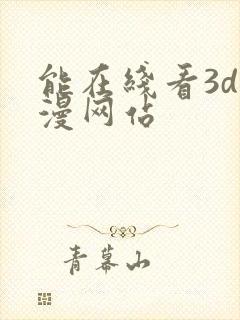 能在綫看3d
漫网站
青幕山